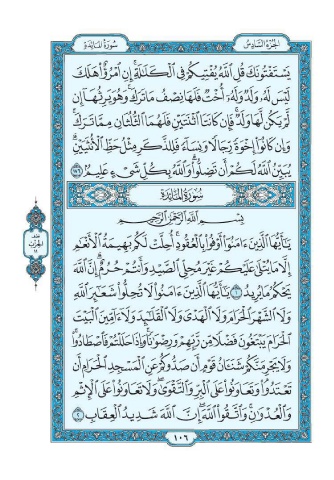 سُورَةُ المَائِدَةِ
الجُزْءُ السَّادِسُ
يَسْتَفْتُونَكَ قُلِ اللَّهُ يُفْتِيكُمْ فِي الْكَلَالَةِ إِنِ امْرُؤٌا هَلَكَ
لَيْسَ لَهُ وَلَدٌ وَلَهُ أُخْتٌ فَلَهَا نِصْفُ مَا تَرَكَ وَهُوَ يَرِثُهَا إِن
لَّمْ يَكُن لَّهَا وَلَدٌ فَإِن كَانَتَا اثْنَتَيْنِ فَلَهُمَا الثُّلُثَانِ مِمَّا تَرَكَ
وَإِن كَانُوا إِخْوَةً رِّجَالًا وَنِسَاءً فَلِلذَّكَرِ مِثْلُ حَظِّ الْأُنثَيَيْنِ
يُبَيِّنُ اللَّهُ لَكُمْ أَن تَضِلُّوا وَاللَّهُ بِكُلِّ شَيْءٍ عَلِيمٌ ١٧٦
سُورَةُ المَائِدَةِ
بِسْمِ اللَّهِ الرَّحْمَٰنِ الرَّحِيمِ
يَا أَيُّهَا الَّذِينَ ءَامَنُوا أَوْفُوا بِالْعُقُودِ أُحِلَّتْ لَكُم بَهِيمَةُ الْأَنْعَامِ
إِلَّا مَا يُتْلَىٰ عَلَيْكُمْ غَيْرَ مُحِلِّي الصَّيْدِ وَأَنتُمْ حُرُمٌ إِنَّ اللَّهَ
يَحْكُمُ مَا يُرِيدُ ١ يَا أَيُّهَا الَّذِينَ ءَامَنُوا لَا تُحِلُّوا شَعَائِرَ اللَّهِ
وَلَا الشَّهْرَ الْحَرَامَ وَلَا الْهَدْيَ وَلَا الْقَلَائِدَ وَلَا ءَامِّينَ الْبَيْتَ
الْحَرَامَ يَبْتَغُونَ فَضْلًا مِّن رَّبِّهِمْ وَرِضْوَانًا وَإِذَا حَلَلْتُمْ فَاصْطَادُوا
وَلَا يَجْرِمَنَّكُمْ شَنَآنُ قَوْمٍ أَن صَدُّوكُمْ عَنِ الْمَسْجِدِ الْحَرَامِ أَن
تَعْتَدُوا وَتَعَاوَنُوا عَلَى الْبِرِّ وَالتَّقْوَىٰ وَلَا تَعَاوَنُوا عَلَى الْإِثْمِ
وَالْعُدْوَانِ وَاتَّقُوا اللَّهَ إِنَّ اللَّهَ شَدِيدُ الْعِقَابِ ٢
١٠٦